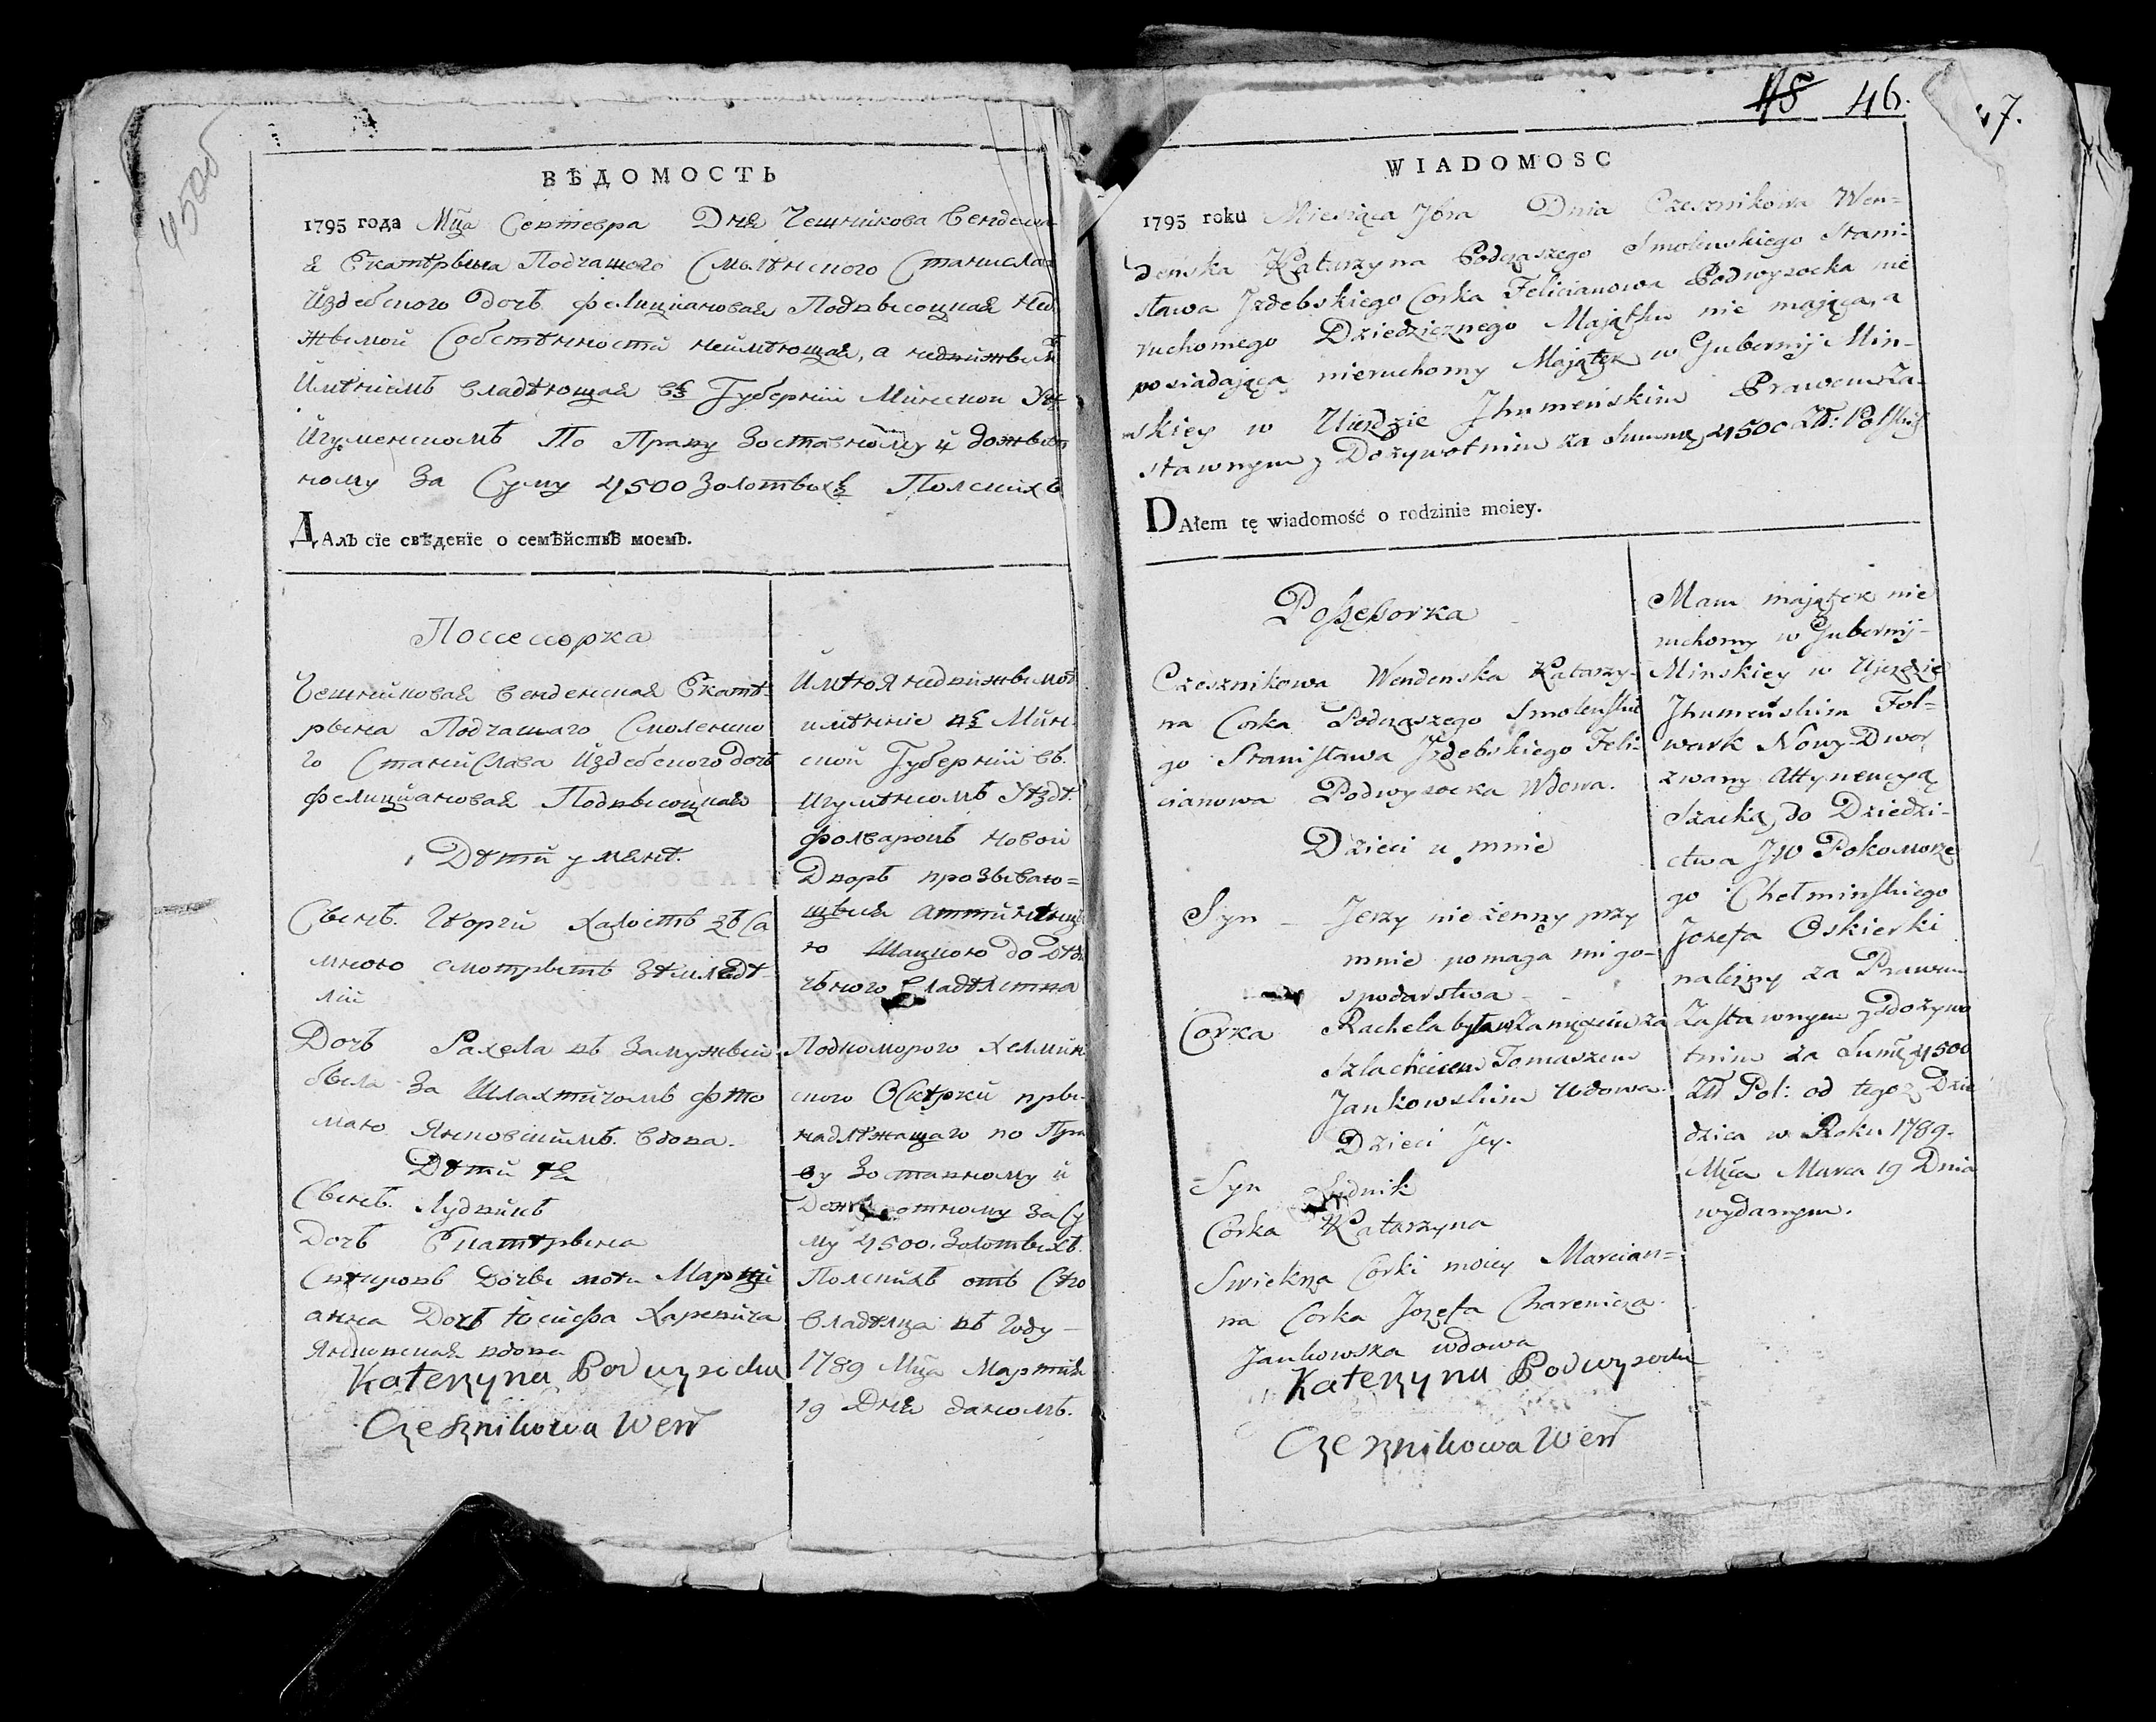 45об
ВѢДОМОСТЬ
1795 года Мца Септевра Дня Чешникова Венденъ
я Екатерына Подчашого Смоленского Станислав
Издебского дочь Фелицияновая Подвысоцкая нед
жвимой Собственности неимеющая, а недвижвим
Имениемъ владеющая въ Губерніи Минской Уез
Игуменскомъ По Праву Заставному и дожвивот
ному За Суму 4500 Золотвыхъ Полскихъ
ДАлъ сїе свѣденїе о семѣйствѣ моемъ.
Поссесорка
Чешниковая Венденская Екате
рвина Подчашаго Смоленско
го Станислава Издебского дочь
Фелицияновая Подвысоцкая
Дети у мене.
Свинъ. Георги Халостъ зъ Са
мною смотрвить Земледе
лій
Дочъ Рахела въ Замужвии
бвила За Шляхтичомъ Фто
маю Янковскимъ. вдова.
Дети Ея
Свинъ. Лудвикъ
Дочъ Екатервина
Свекровь Дочви моеи Марци
анна Дочъ Іосифа Харевича
Янковская вдова
Katerzyna Podwysocka
Czesznikowa Wen
Имею я недвижвимое
имение въ Мин
ской Губерніи въ.
Игуменскомъ Уезде.
Фолварокъ Новои
Дворъ прозвиваю=
щвися аттиненци
ю Шацкою до Деди
чвного Владелства
Подкоморого Хелмин
ского Оскерки први
надлежащаго по Пра
ву Заставному и
Дожвивотному за Су
му 4500. Золотвихъ.
Полскихъ отъ Сего
Владелца въ Году
1789 Мца Мартия
19 Дня даномъ.
45 46.
47.
WIADOMOSC
1795 roku Miesiąca 7bra Dnia Czesznikowa Wen=
deńska Katarzyna Podczaszego Smolenskiego Stani=
sława Jzdebskiego Corka Felicianowa Podwysocka nie
ruchomego Dziedzicznego Maiątku nie maiąca, a
posiadaiąca nieruchomy Maiątek w Gubernij Min=
skiey w Uiezdzie Jhumeńskim Prawem Za=
stawnym y Dożywotnim za Summę 4500 Zł: Polskich
DAłem tę wiadomość o rodzinie moiey.
Possessorka
Czesznikowa Wendenska Katarzy=
na Corka Podczaszego Smolenskie
go Stanisława Jzdebskiego Feli=
cianowa Podwysocka Wdowa.
Dzieci u mnie
Syn – Jerzy nie żenny przy
mnie pomaga mi go=
spodarstwa
Corka Rachela była w Zamęsciu za
Szlachcicem Tomaszem
Jankowskim Wdowa.
Dzieci Jey.
Syn Ludwik
Corka Katarzyna
Swiekra Corki moiey Marcian=
na Corka Jozefa Charewicza
Jankowska wdowa
Katerzyna Podwysocka
Czesznikowa Wen
Mam maiątek nie
ruchomy w Gubernij=
Minskiey w Ujezdzie
Jhumeńskim Fol=
wark Nowy-Dwor
zwany Attynencyą
Szacką do Dziedzi=
ctwa JW Pokomorze
go Chełminskiego
Jozefa Oskierki
należny za Prawem
Zastawnym y dożywo
tnim za Sumę 4500
Zł Pol: od tegoz Dzie
dzica w Roku 1789.
Mca Marca 19 Dnia
wydanym.